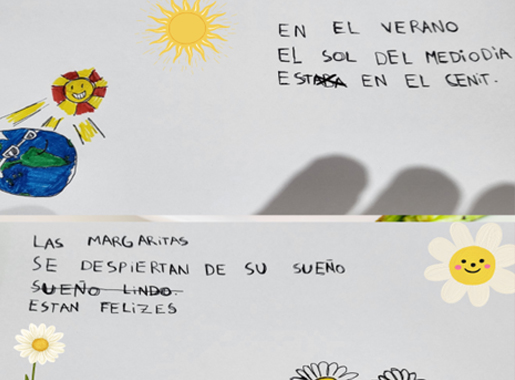 EN EL VERANO
EL SOL DEL MEDIODIA
ESTA EN EL CENIT.
LAS MARGARITAS
SE DESPIERTAN DE SU SUEÑO
SUEÑO LINDO.
ESTAN FELIZES